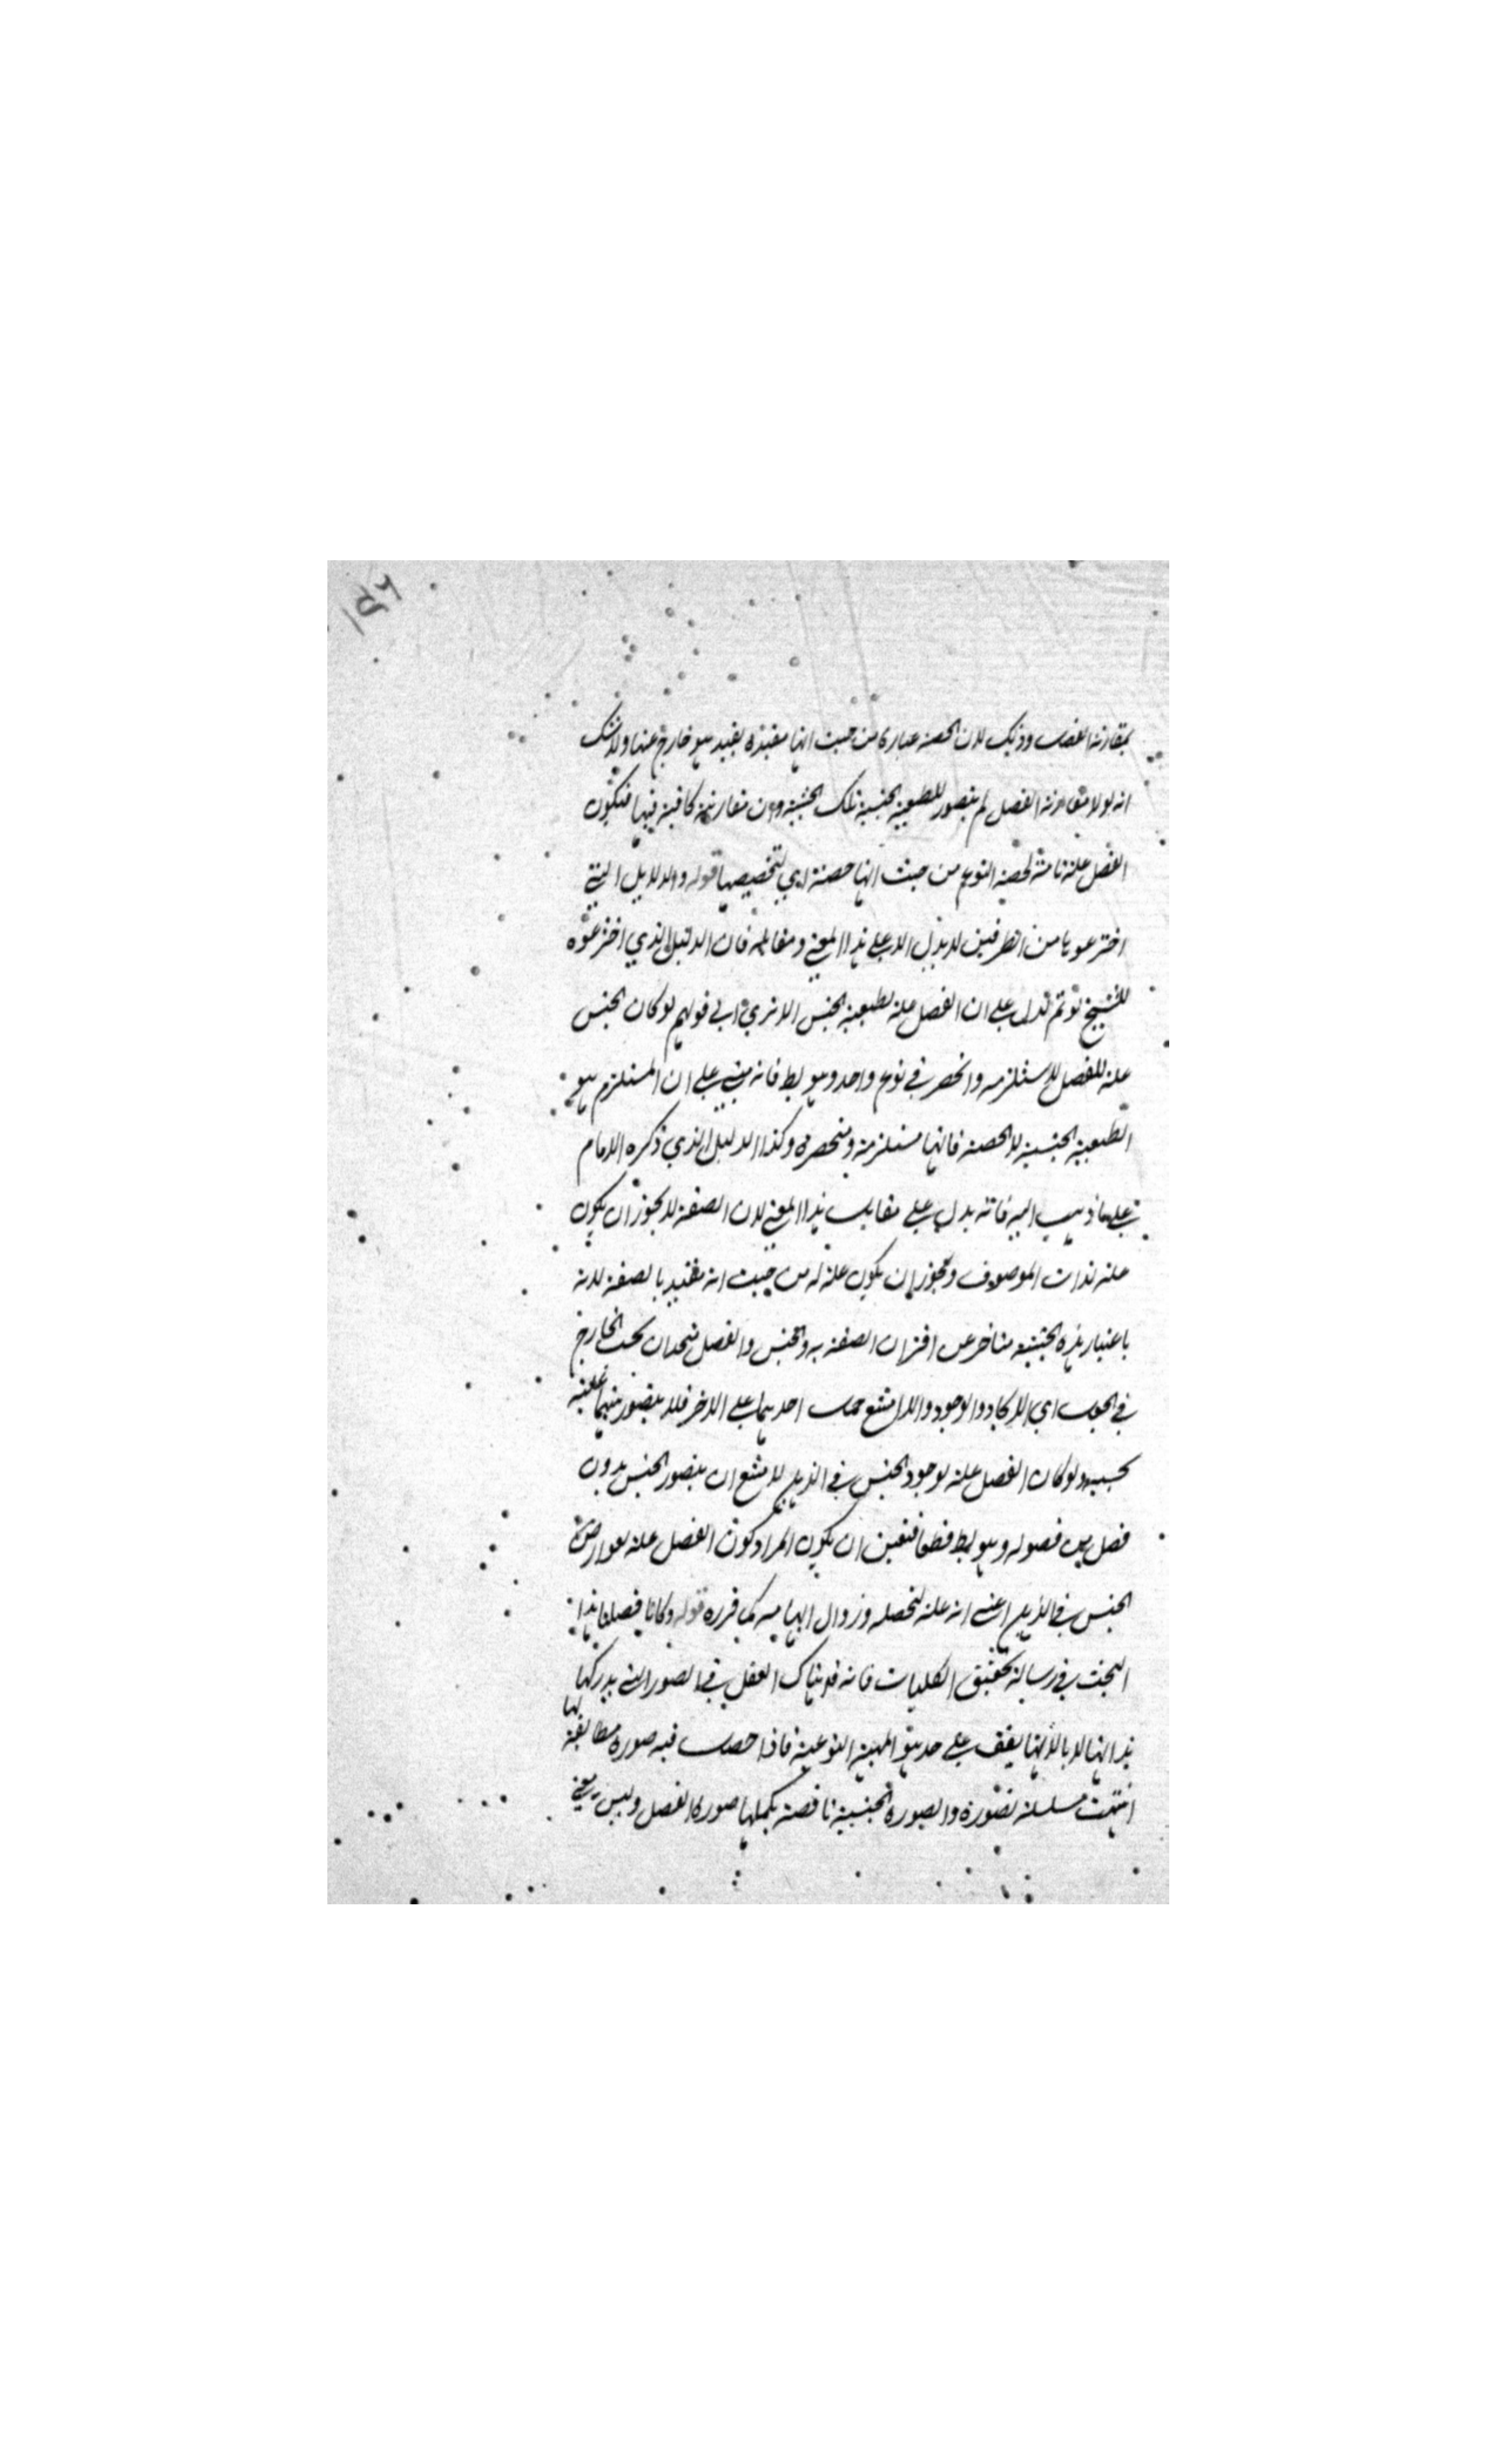 بمقارنة الفصل وذلك لان الحصة عبارة من حيث انها مقيدة بقيد هو خارج عنها ولا شك
انه لولا مقارنة الفصل لم يتصور للطبيعة الجنسية تلك الحيثية وان مقارنته كافية فيها فيكون
الفصل علة تامة لحصة النوع من حيث انها حصة اي لتخصيصها قوله والدلايل التي
اخترعوها من الطرفين لا يدل الا على هذا المعنى ومقابله فان الدليل الذي اخترعوه
للشيخ لو تم لدل على ان الفصل علة لطبيعة الجنس الا ترى الى قولهم لو كان الجنس
علة للفصل لاستلزمه وانحصر في نوع واحد وهو بط فانه مبني على ان المستلزم هو
الطبيعة الجنسية لا الحصة فانها مستلزمة ومنحصرة وكذا الدليل الذي ذكره الامام
على ما ذهب اليه فانه يدل على مقابل هذا المعنى لان الصفة لا يجوز ان يكون
علة لذات الموصوف ويجوز ان يكون علة له من حيث انه مقيد بالصفة لانه
باعتبار هذه الحيثية متاخر عن اقتران الصفة به والجنس والفصل متحدان بحسب الخارج
في الجعل اي الايجاد والوجود والا امتنع حمل احدهما على الاخر فلا يتصور بينهما علية
بحسبه ولو كان الفصل علة لوجود الجنس في الذهن لامتنع ان يتصور الجنس بدون
فصل من فصوله وهو بط قطعا فتعين ان يكون المراد كون الفصل علة لعوارض
الجنس في الذهن اعني انه علة لتحصله وزوال ابهامه كما قرره قوله وكانا فصلنا هذا
البحث في رسالة تحقيق الكليات فانه قد هناك العقل في الصور التي يدركها
بذاتها لا بالاتها يقف على حد هو المهية النوعية فاذا حصل فيه صورة مطابقة لها
انتهت سلسلة تصوره والصورة الجنسية ناقصة يكملها صورة الفصل وليس معنى